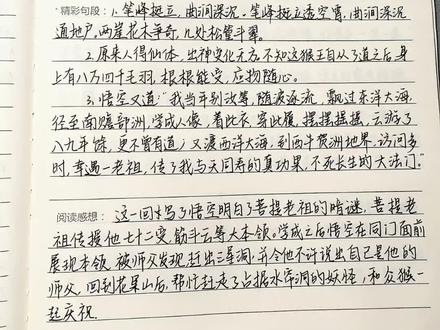 精彩句段：1.笔峰挺立，曲涧深沉。笔峰挺立透空霄，曲涧深沉
通地户。两岸花木争奇，几处松篁斗翠。
2.原来人得仙体，出神变化无方。不知这猴王自从了道之后，身
上有八万四千毛羽，根根能变，应物随心。
3.悟空又道：“我当年别汝等，随波逐流，飘过东洋大海，
径至南赡部洲，学成人像，着此衣，穿此履，摆摆摇摇，云游了
八九年馀，更不曾有道；又渡西洋大海，到西牛贺洲地界，访问多
时，幸遇一老祖，传了我与天同寿的真功果，不死长生的大法门。”
阅读感想：这一回描写了悟空明白了菩提老祖的暗谜，菩提老
祖传授他七十二变，筋斗云等大本领。学成之后悟空在同门面前
展现本领，被师父发现赶出三星洞，并令他不许说出自己是他的
师父。回到花果山后，帮忙赶走了占据水帘洞的妖怪，和众猴一
起庆祝.